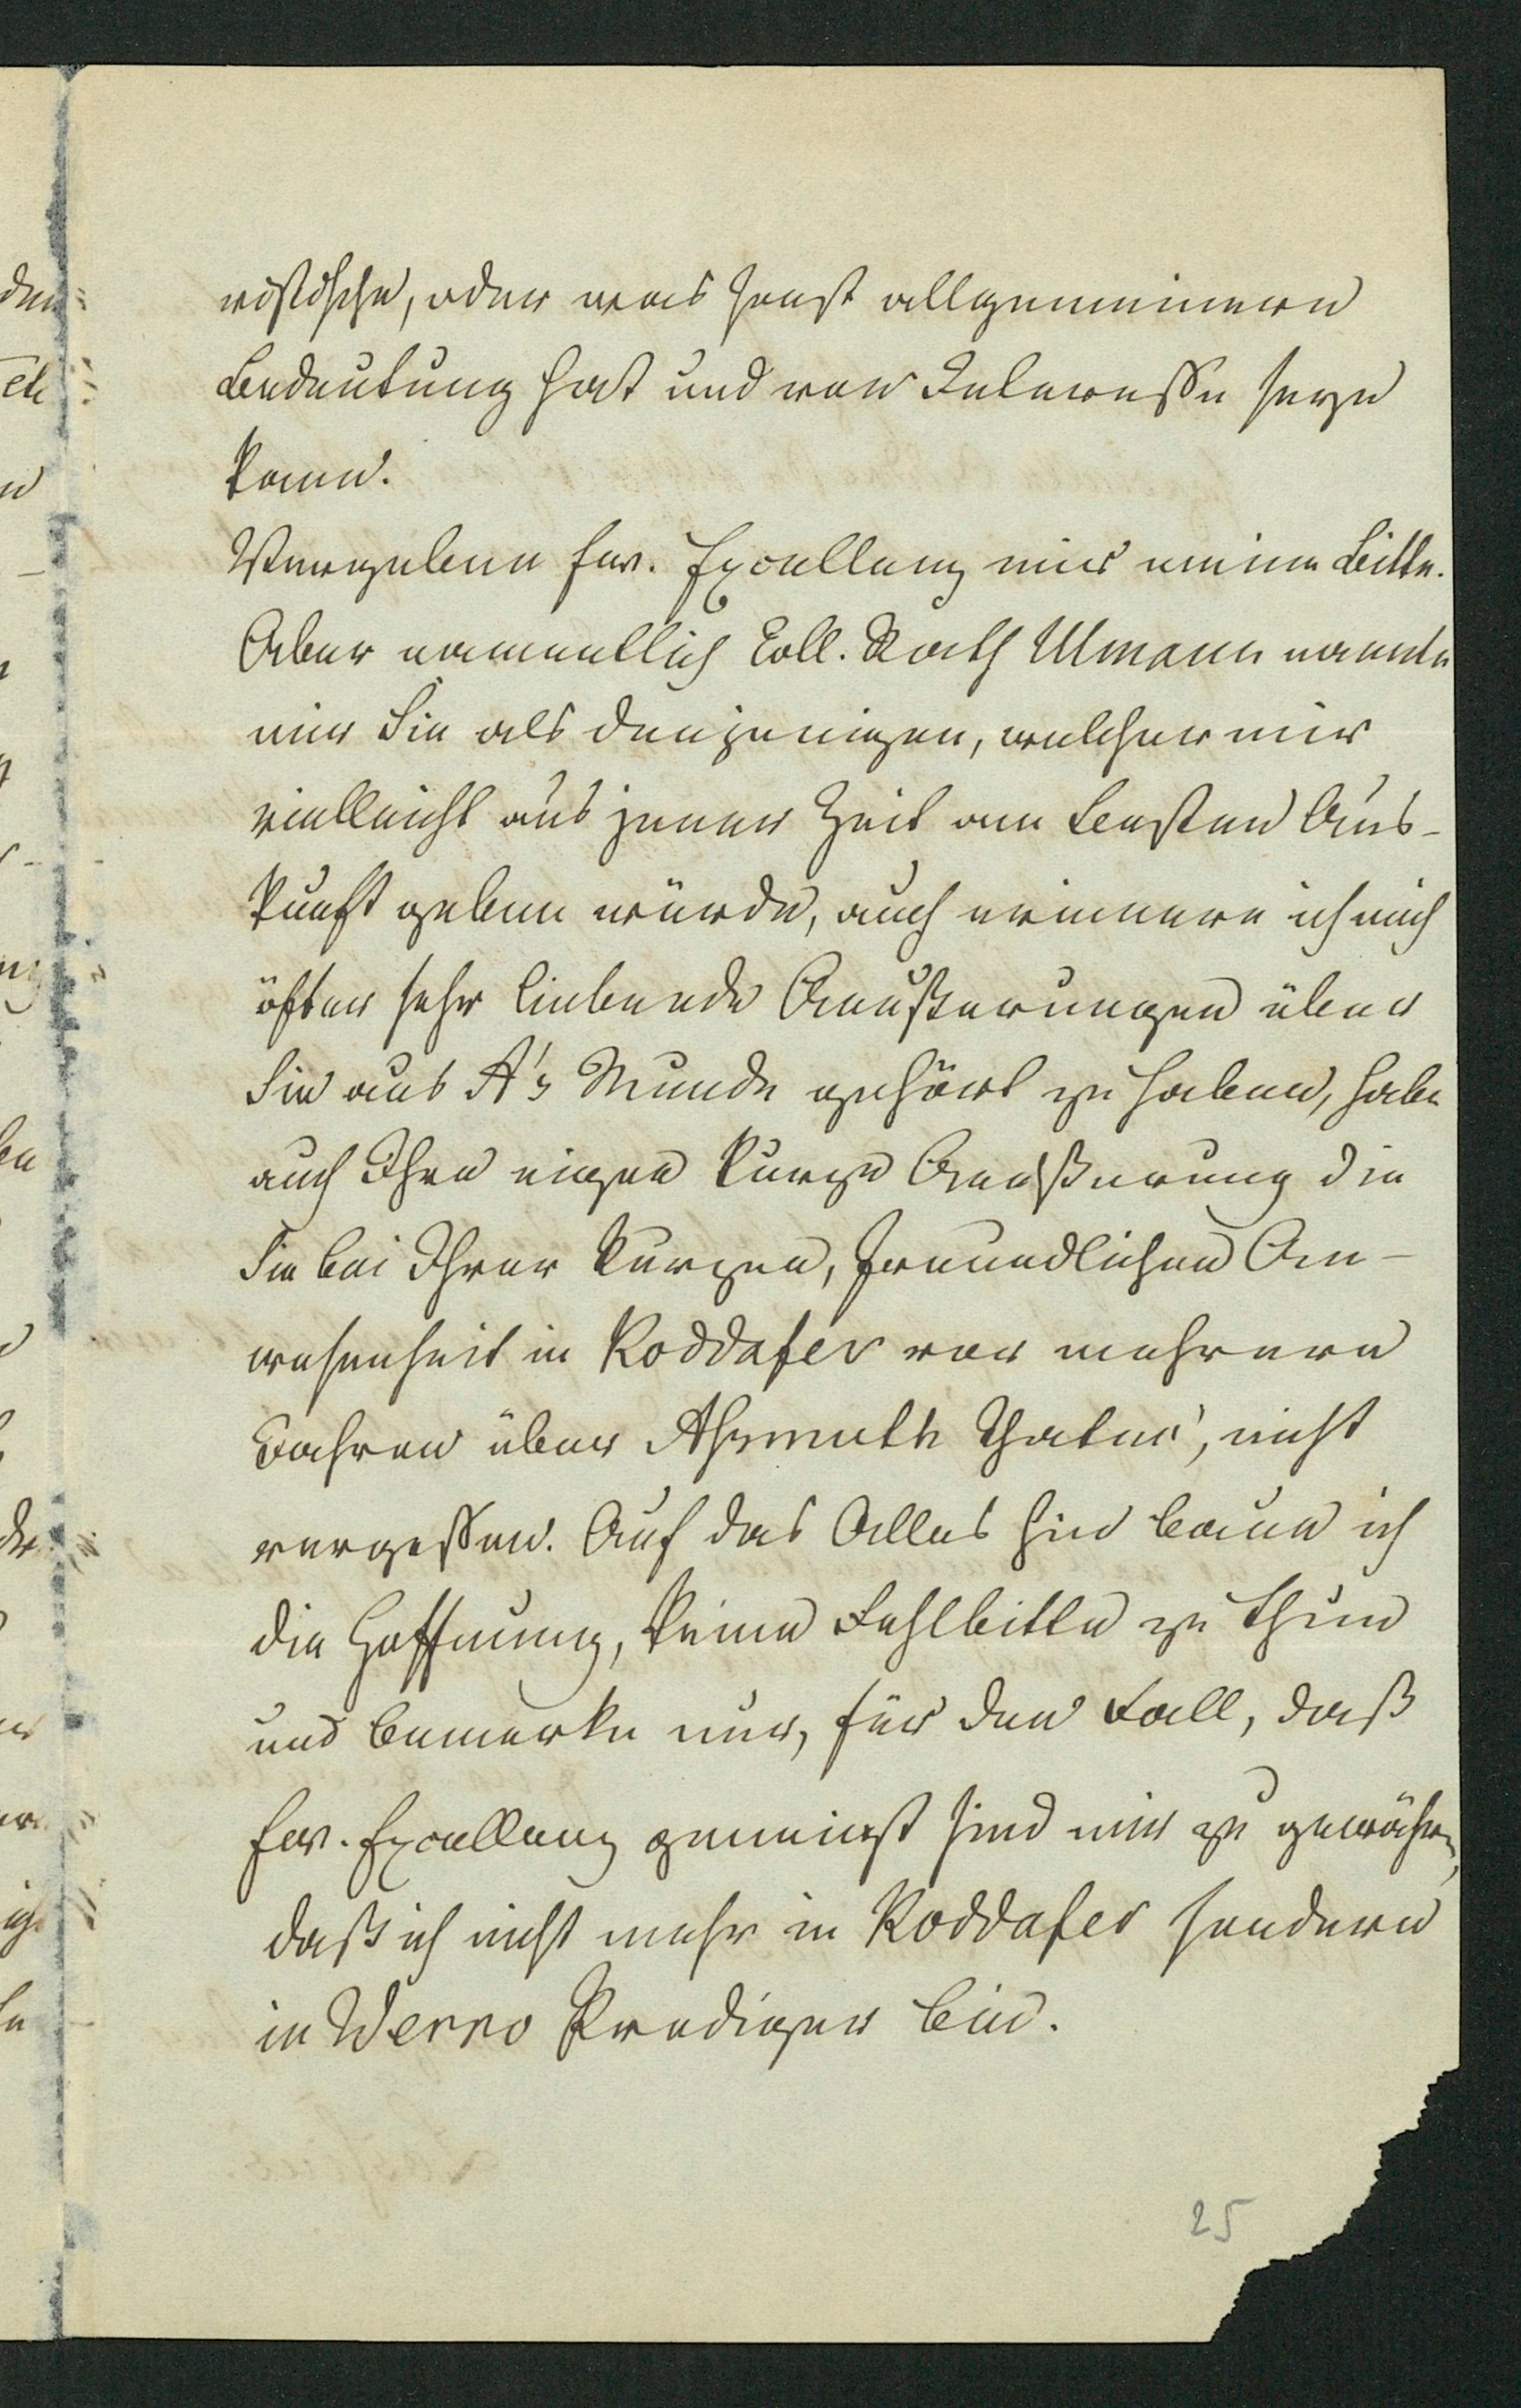 ristische, oder was sonst allgemeinern
Bedeutung hat und von Interesse seyn
kann.
Vergeben Ew. Excellenz mir meine Bitte.
Aber namentlich Coll. Rath Ulmann nannte
mir Sie als denjenigen, welcher mir
vielleicht aus jener Zeit am Besten Aus-
kunft geben würde, auch erinnere ich mich
öfter sehr liebende Aeußerungen über
Sie aus A's Munde gehört zu haben, habe
auch Ihre eigne kurze Aeußerung die
Sie bei Ihrer kurzen, freundlichen An-
wesenheit in Koddafer vor mehrern
Jahren über Asmuth thaten, nicht
vergessen. Auf das Alles hin baue ich
die Hoffnung, keine Fehlbitte zu thun
und bemerke nur, für den Fall, daß
Ew. Excellenz geneigt sind mir zu gewähren,
daß ich nicht mehr in Koddafer sondern
in Werro Prediger bin.
25